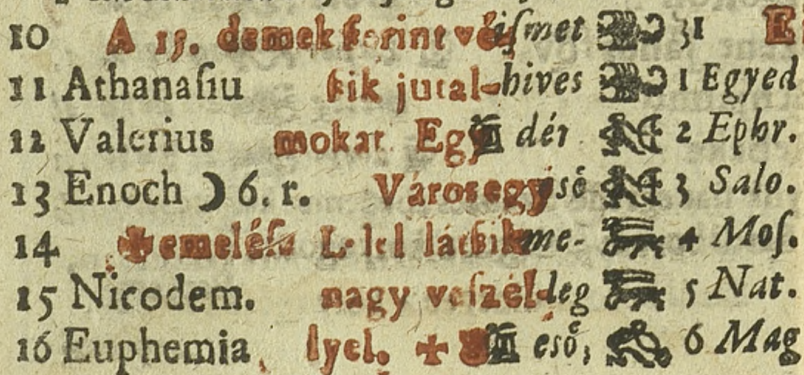 10 A 15. ismet 31 E
11 Athanasiu sik jutal- hives 1 Egyed
12 Valerius mokat Egy dér 2 Ephr.
13 Enoch ☽ 6. r. Város egy esö 3 Salo.
14 ✠ me- 4 Mos.
15 Nicodem. nagy veszél- leg 5 Nat.
16 Euphemia lyel. ✠ esö, 6 Mag